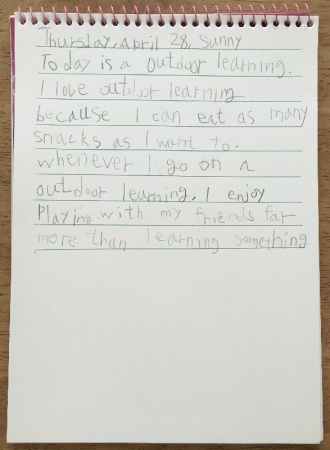 Thursday, April 28, Sunny
Today is a outdoor learning.
I love outdoor learning
because I can eat as many
snacks as I want to.
whenever I go on a
outdoor learning, I enjoy
Playing with my friends far
more than learning something